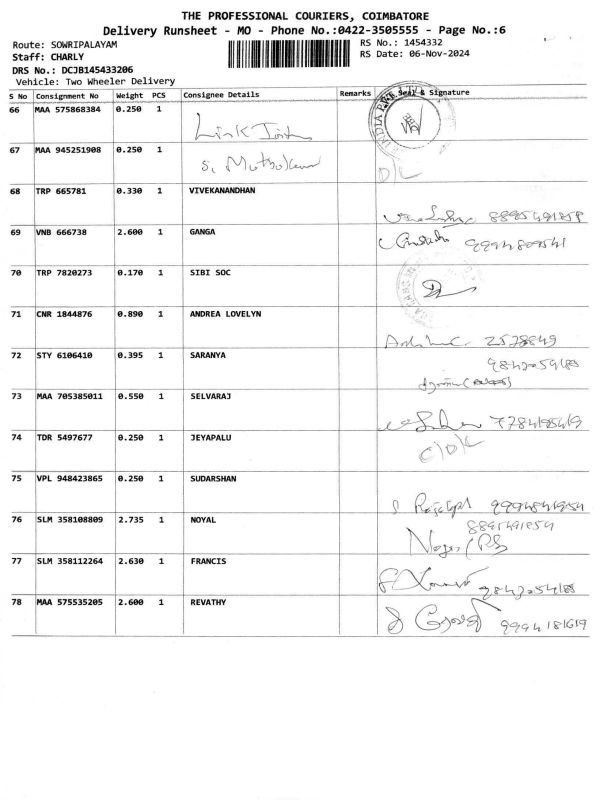 THE PROFESSIONAL COURIERS, COIMBATORE
Delivery Runsheet - MO - Phone No.:0422-3505555 - Page No.:6
Route: SOWRIPALAYAM RS No.: 1454332
Staff: CHARLY RS Date: 06-Nov-2024
DRS No.: DCJB145433206
Vehicle: Two Wheeler Delivery
S No Consignment No Weight PCS Consignee Details Remarks Seal & Signature
66 MAA 575868384 0.250 1
Link
67 MAA 945251908 0.250 1
S.
D/L
68 TRP 665781 0.330 1 VIVEKANANDHAN
8895491859
69 VNB 666738 2.600 1 GANGA
9994809541
70 TRP 7820273 0.170 1 SIBI SOC
71 CNR 1844876 0.890 1 ANDREA LOVELYN
2578849
72 STY 6106410 0.395 1 SARANYA
73 MAA 705385011 0.550 1 SELVARAJ
74 TDR 5497677 0.250 1 JEYAPALU
C/D/L
75 VPL 948423865 0.250 1 SUDARSHAN
76 SLM 358108809 2.735 1 NOYAL
77 SLM 358112264 2.630 1 FRANCIS
78 MAA 575535205 2.600 1 REVATHY
9994181619